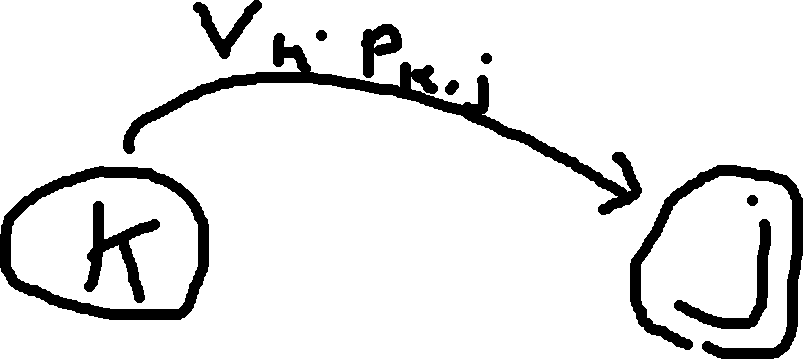 V k · P k,j
k j